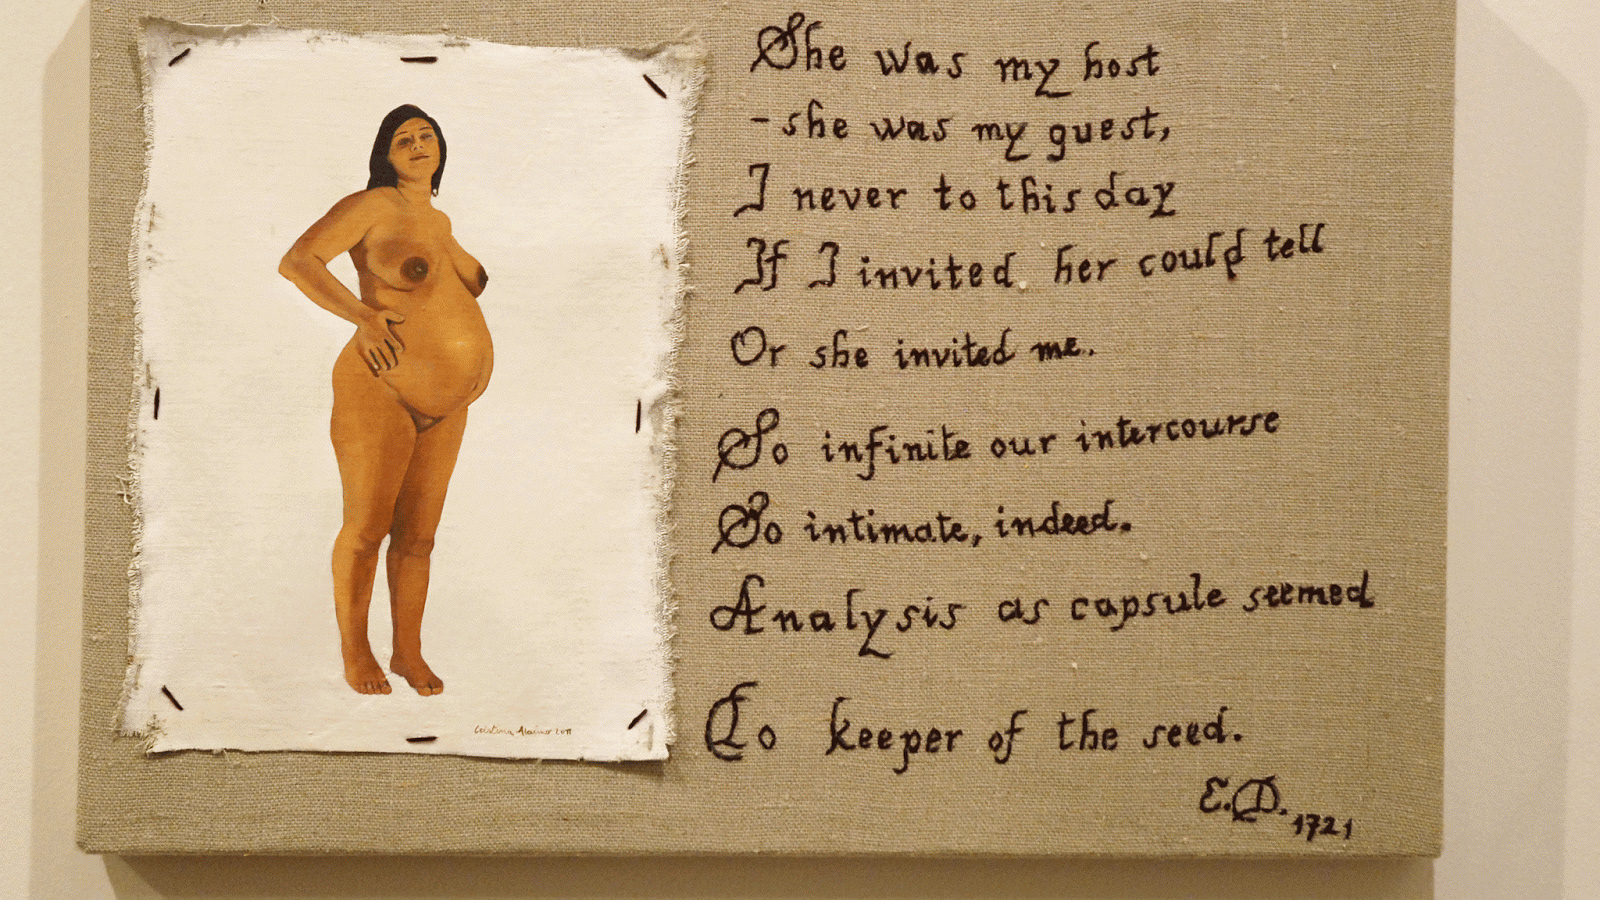 She was my host
-she was my guest,
I never to this day
If I invited her could tell
Or she invited me.
So infinite our intercourse
So intimate, indeed.
Analysis as capsule seemed
To keeper of the seed.
E.D. 1721